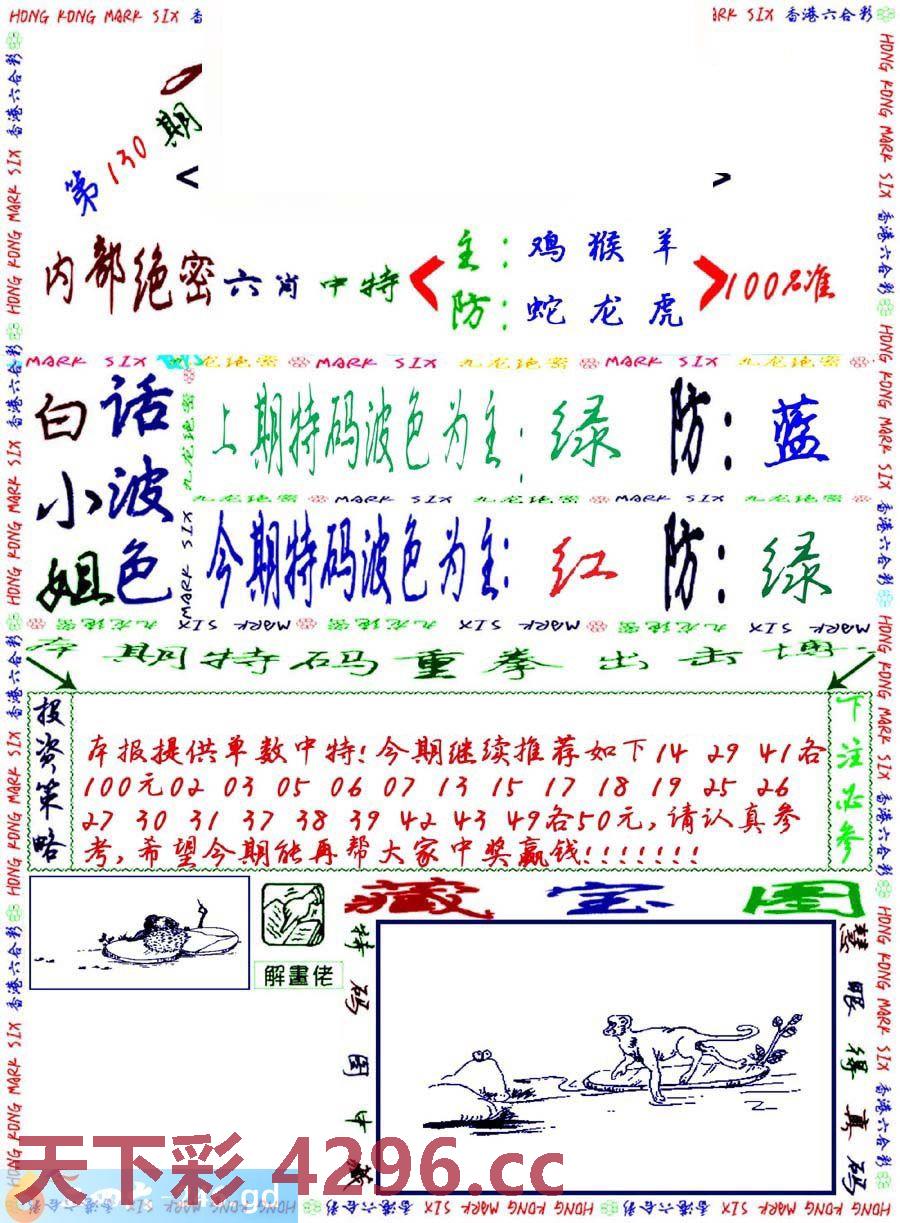 HONG KONG MARK SIX 香
ARK SIX 香港六合彩
第130期
< >
内部绝密六肖中特
主：鸡猴羊
防：蛇龙虎
100%准
MARK SIX 九龙绝密 MARK SIX 九龙绝密 MARK SIX 九龙绝密
白小姐
话波色
上期特码波色为主：绿 防：蓝
九龙绝密 MARK SIX 九龙绝密 MARK SIX 九龙绝密
今期特码波色为主：红 防：绿
九龙绝密 MARK SIX 九龙绝密 MARK SIX 九龙绝密 MARK SIX
期特码重拳出击
投资策略
本报提供单数中特!今期继续推荐如下14 29 41各
100元02 03 05 06 07 13 15 17 18 19 25 26
27 30 31 37 38 39 42 43 49各50元,请认真参
考,希望今期能再帮大家中奖赢钱!!!!!!!
下注必参
藏宝图
解畫佬
特码图中藏
慧眼得真码
天下彩 4296.cc
gd
HONG KONG MARK SIX 香港六合彩